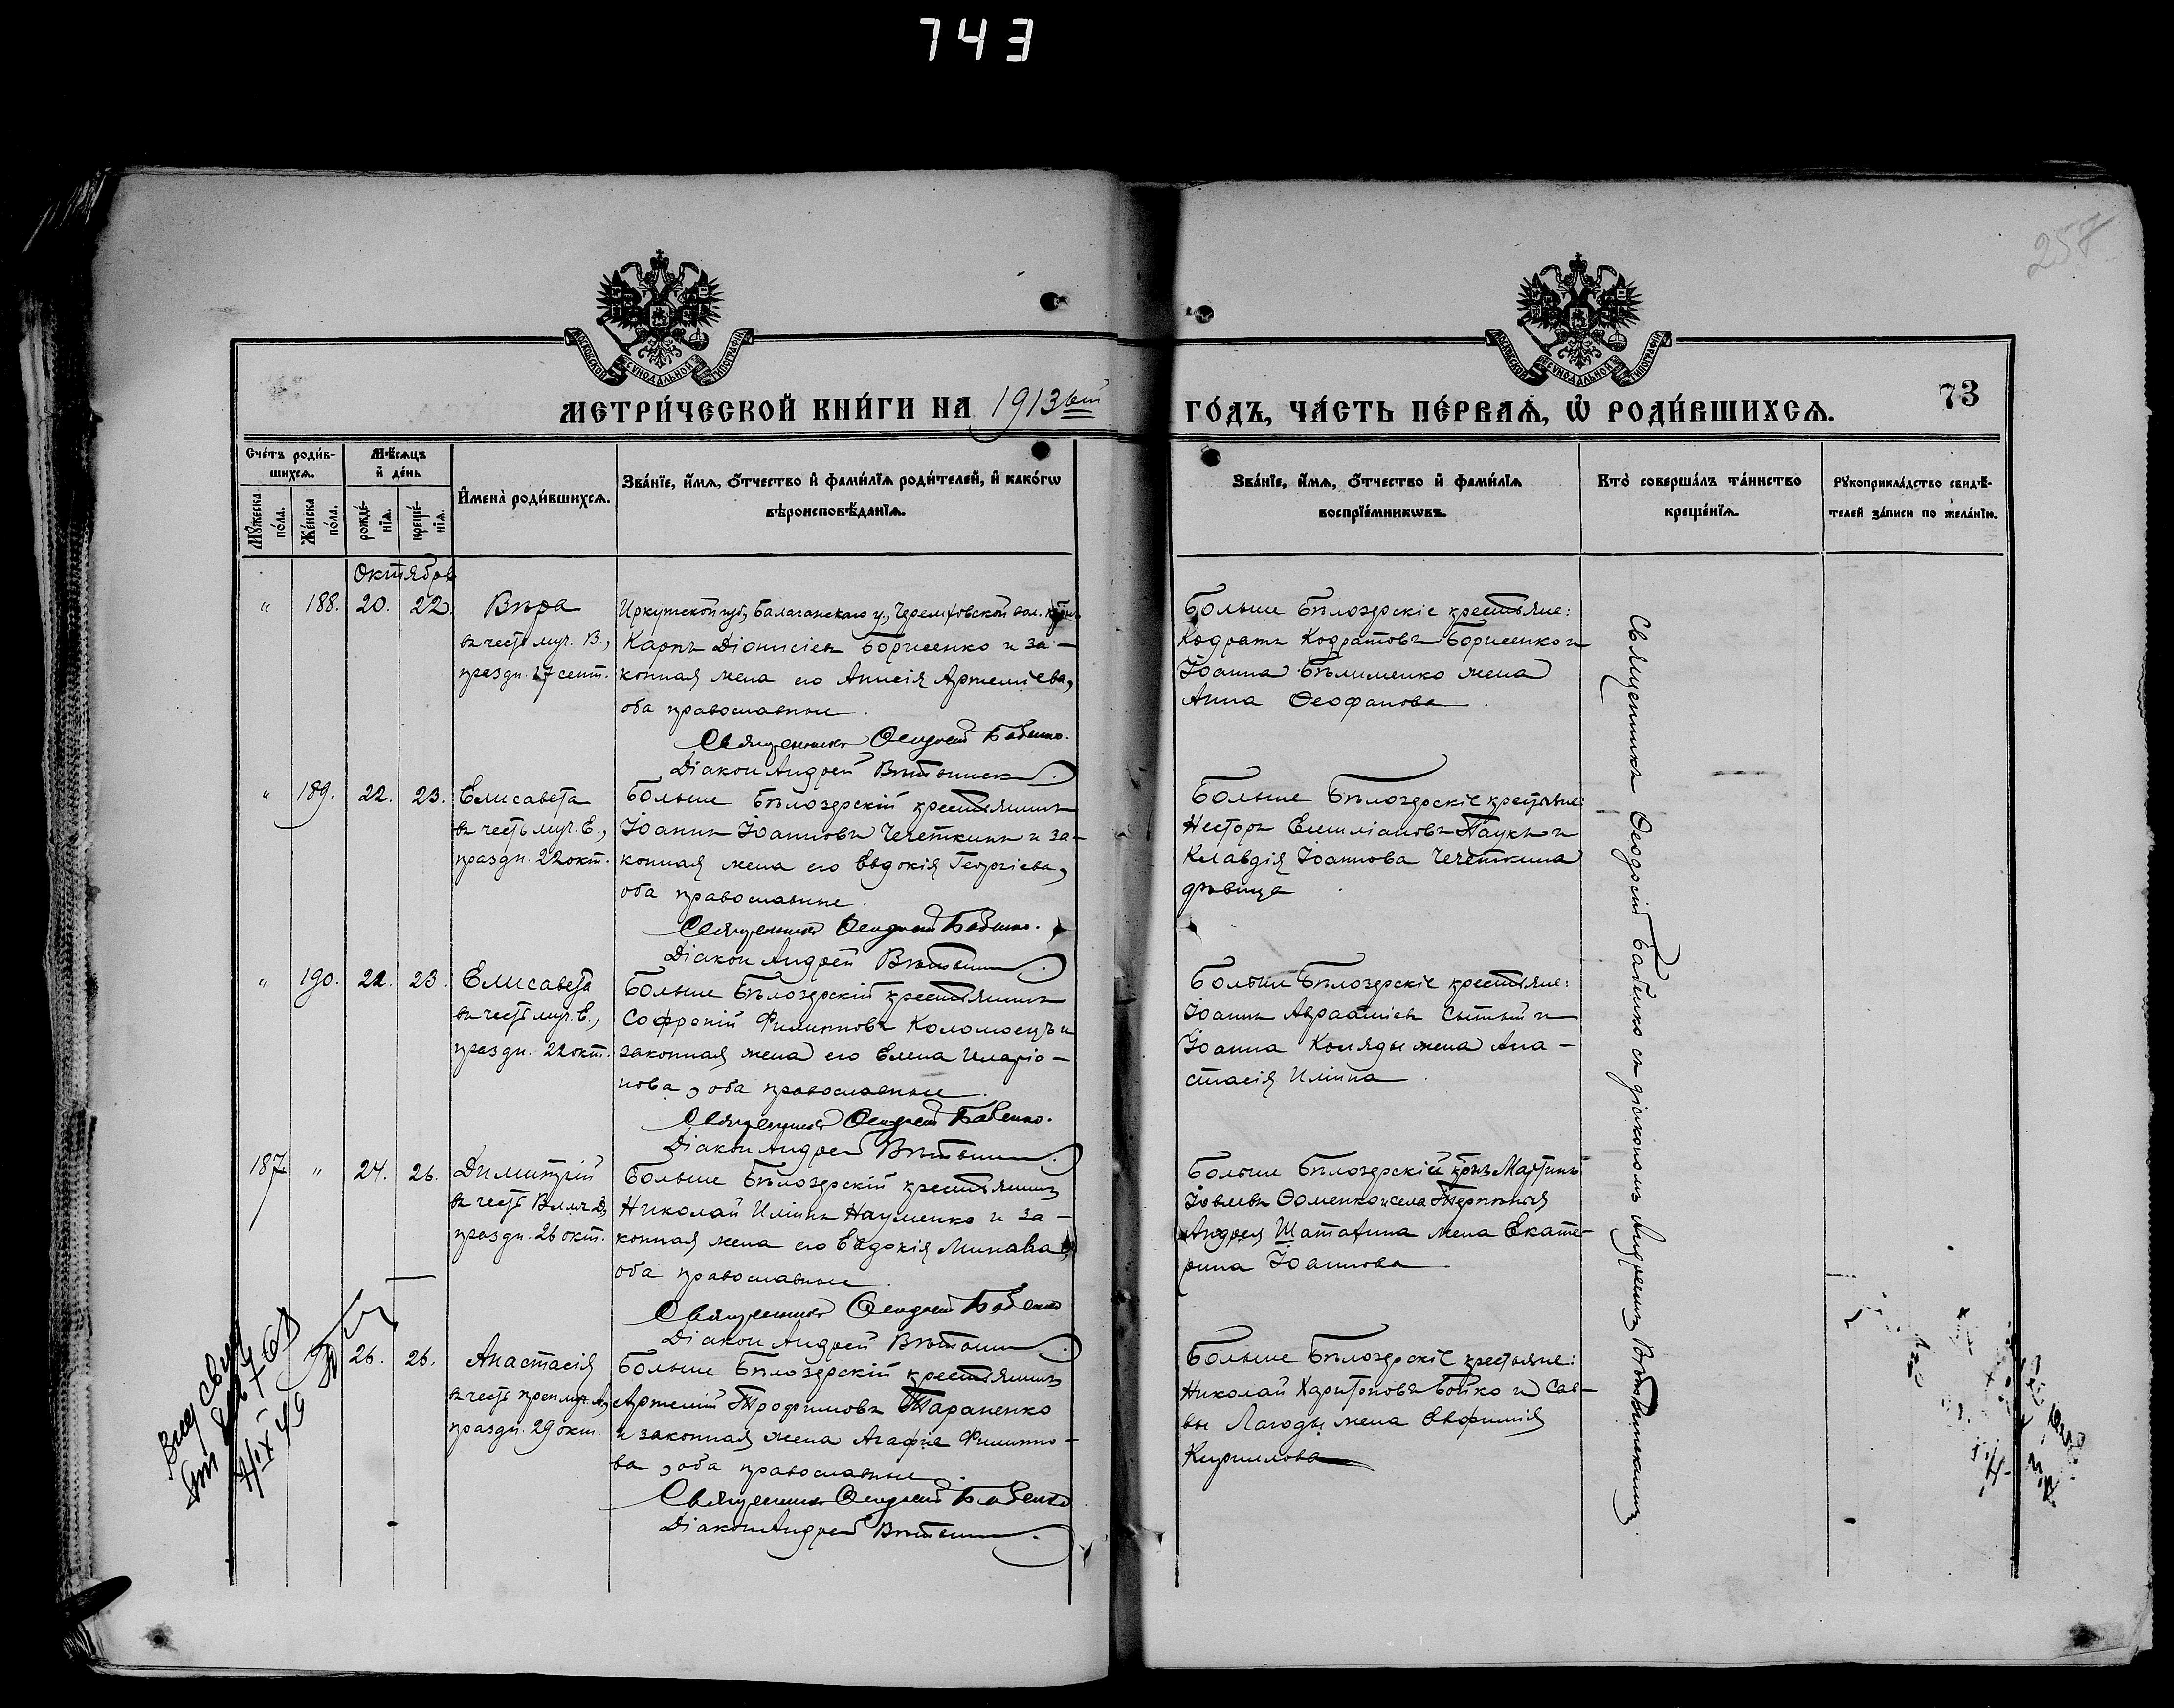 743
257
МОСКОВСКОЙ СѴНОДАЛЬНОЙ ТИПОГРАФІИ
МОСКОВСКОЙ СѴНОДАЛЬНОЙ ТИПОГРАФІИ
МЕТРИ́ЧЕСКОЙ КНИ́ГИ НА 1913ый
ГО́ДЪ, ЧА́СТЬ ПЕ́РВАѦ, Ѡ РОДИ́ВШИХСѦ.
73
Сче́тъ роди́в-
шихсѧ.
Мꙋ́жеска
по́ла.
Же́нска
по́ла.
Мѣ́сѧцъ
и҆ де́нь
рожде́-
нїѧ.
креще́-
нїѧ.
И҆мена̀ роди́вшихсѧ.
Зва́нїе, и҆́мѧ, ѻ҆́тчество и҆ фами́лїѧ роди́телей, и҆ како́гѡ
вѣроисповѣ́данїѧ.
Зва́нїе, и҆́мѧ, ѻ҆́тчество и҆ фами́лїѧ
воспрїе́мникѡвъ.
Кто̀ соверша́лъ та́инство
креще́нїѧ.
Рꙋкоприкла́дство свидѣ́-
телей за́писи по жела́нїю.
Октябрь
" 188. 20. 22.
Вѣра
въ честь муч. В.,
праздн. 17 сент.
Иркутской губ., Балаганскаго у., Черемховской вол. кр-нъ
Карпъ Діонисіевъ Борисенко и за-
конная жена его Анисія Артеміева,
оба православные.
Священникъ Ѳеодосій Бабенко.
Діаконъ Андрей
Больше Бѣлозерскіе крестьяне:
Кодратъ Кодратовъ Борисенко и
Іоанна Бѣлименко жена
Анна Ѳеофанова
" 189. 22. 23.
Елисавета
въ честь муч. Е.,
праздн. 22 окт.
Больше Бѣлозерскій крестьянинъ
Іоаннъ Іоанновъ Чечеткинъ и за-
конная жена его Евдокія Георгіева,
оба православные.
Священникъ Ѳеодосій Бабенко.
Діаконъ Андрей
Больше Бѣлозерскіе крестьяне:
Несторъ Емиліановъ Паукъ и
Клавдія Іоаннова Чечеткина
дѣвица
" 190. 22. 23.
Елисавета
въ честь муч. Е.,
праздн. 22 окт.
Больше Бѣлозерскій крестьянинъ
Софроній Филипповъ Коломоецъ и
законная жена его Елена Иларіо-
нова, оба православные.
Священникъ Ѳеодосій Бабенко.
Діаконъ Андрей
Больше Бѣлозерскіе крестьяне:
Іоаннъ Авраамовъ Сытый и
Іоанна Коляды жена Ана-
стасія Иліина
187 " 24. 26.
Димитрій
въ честь Влмч. Д.,
праздн. 26 окт.
Больше Бѣлозерскій крестьянинъ
Николай Иліинъ Науменко и за-
конная жена его Евдокія Минаева,
оба православные
Священникъ Ѳеодосій Бабенко
Діаконъ Андрей
Больше Бѣлозерскій кр-нъ Мартинъ
Іовлевъ Ѳоменко и села Терпѣнія
Андрея жена Екате-
рина Іоаннова
26. 26.
Анастасія
въ честь преп. муч. А.,
праздн. 29 окт.
Больше Бѣлозерскій крестьянинъ
Артемій Трофимовъ Тараненко
и законная жена Агафія Филиппо-
ва, оба православные.
Священникъ Ѳеодосій Бабенко
Діаконъ Андрей
Больше Бѣлозерскіе крестьяне:
Николай Харитоновъ Бойко и Сав-
вы Лагоды жена Евфимія
Кириллова
Священникъ Ѳеодосій Бабенко съ діакономъ Андреемъ